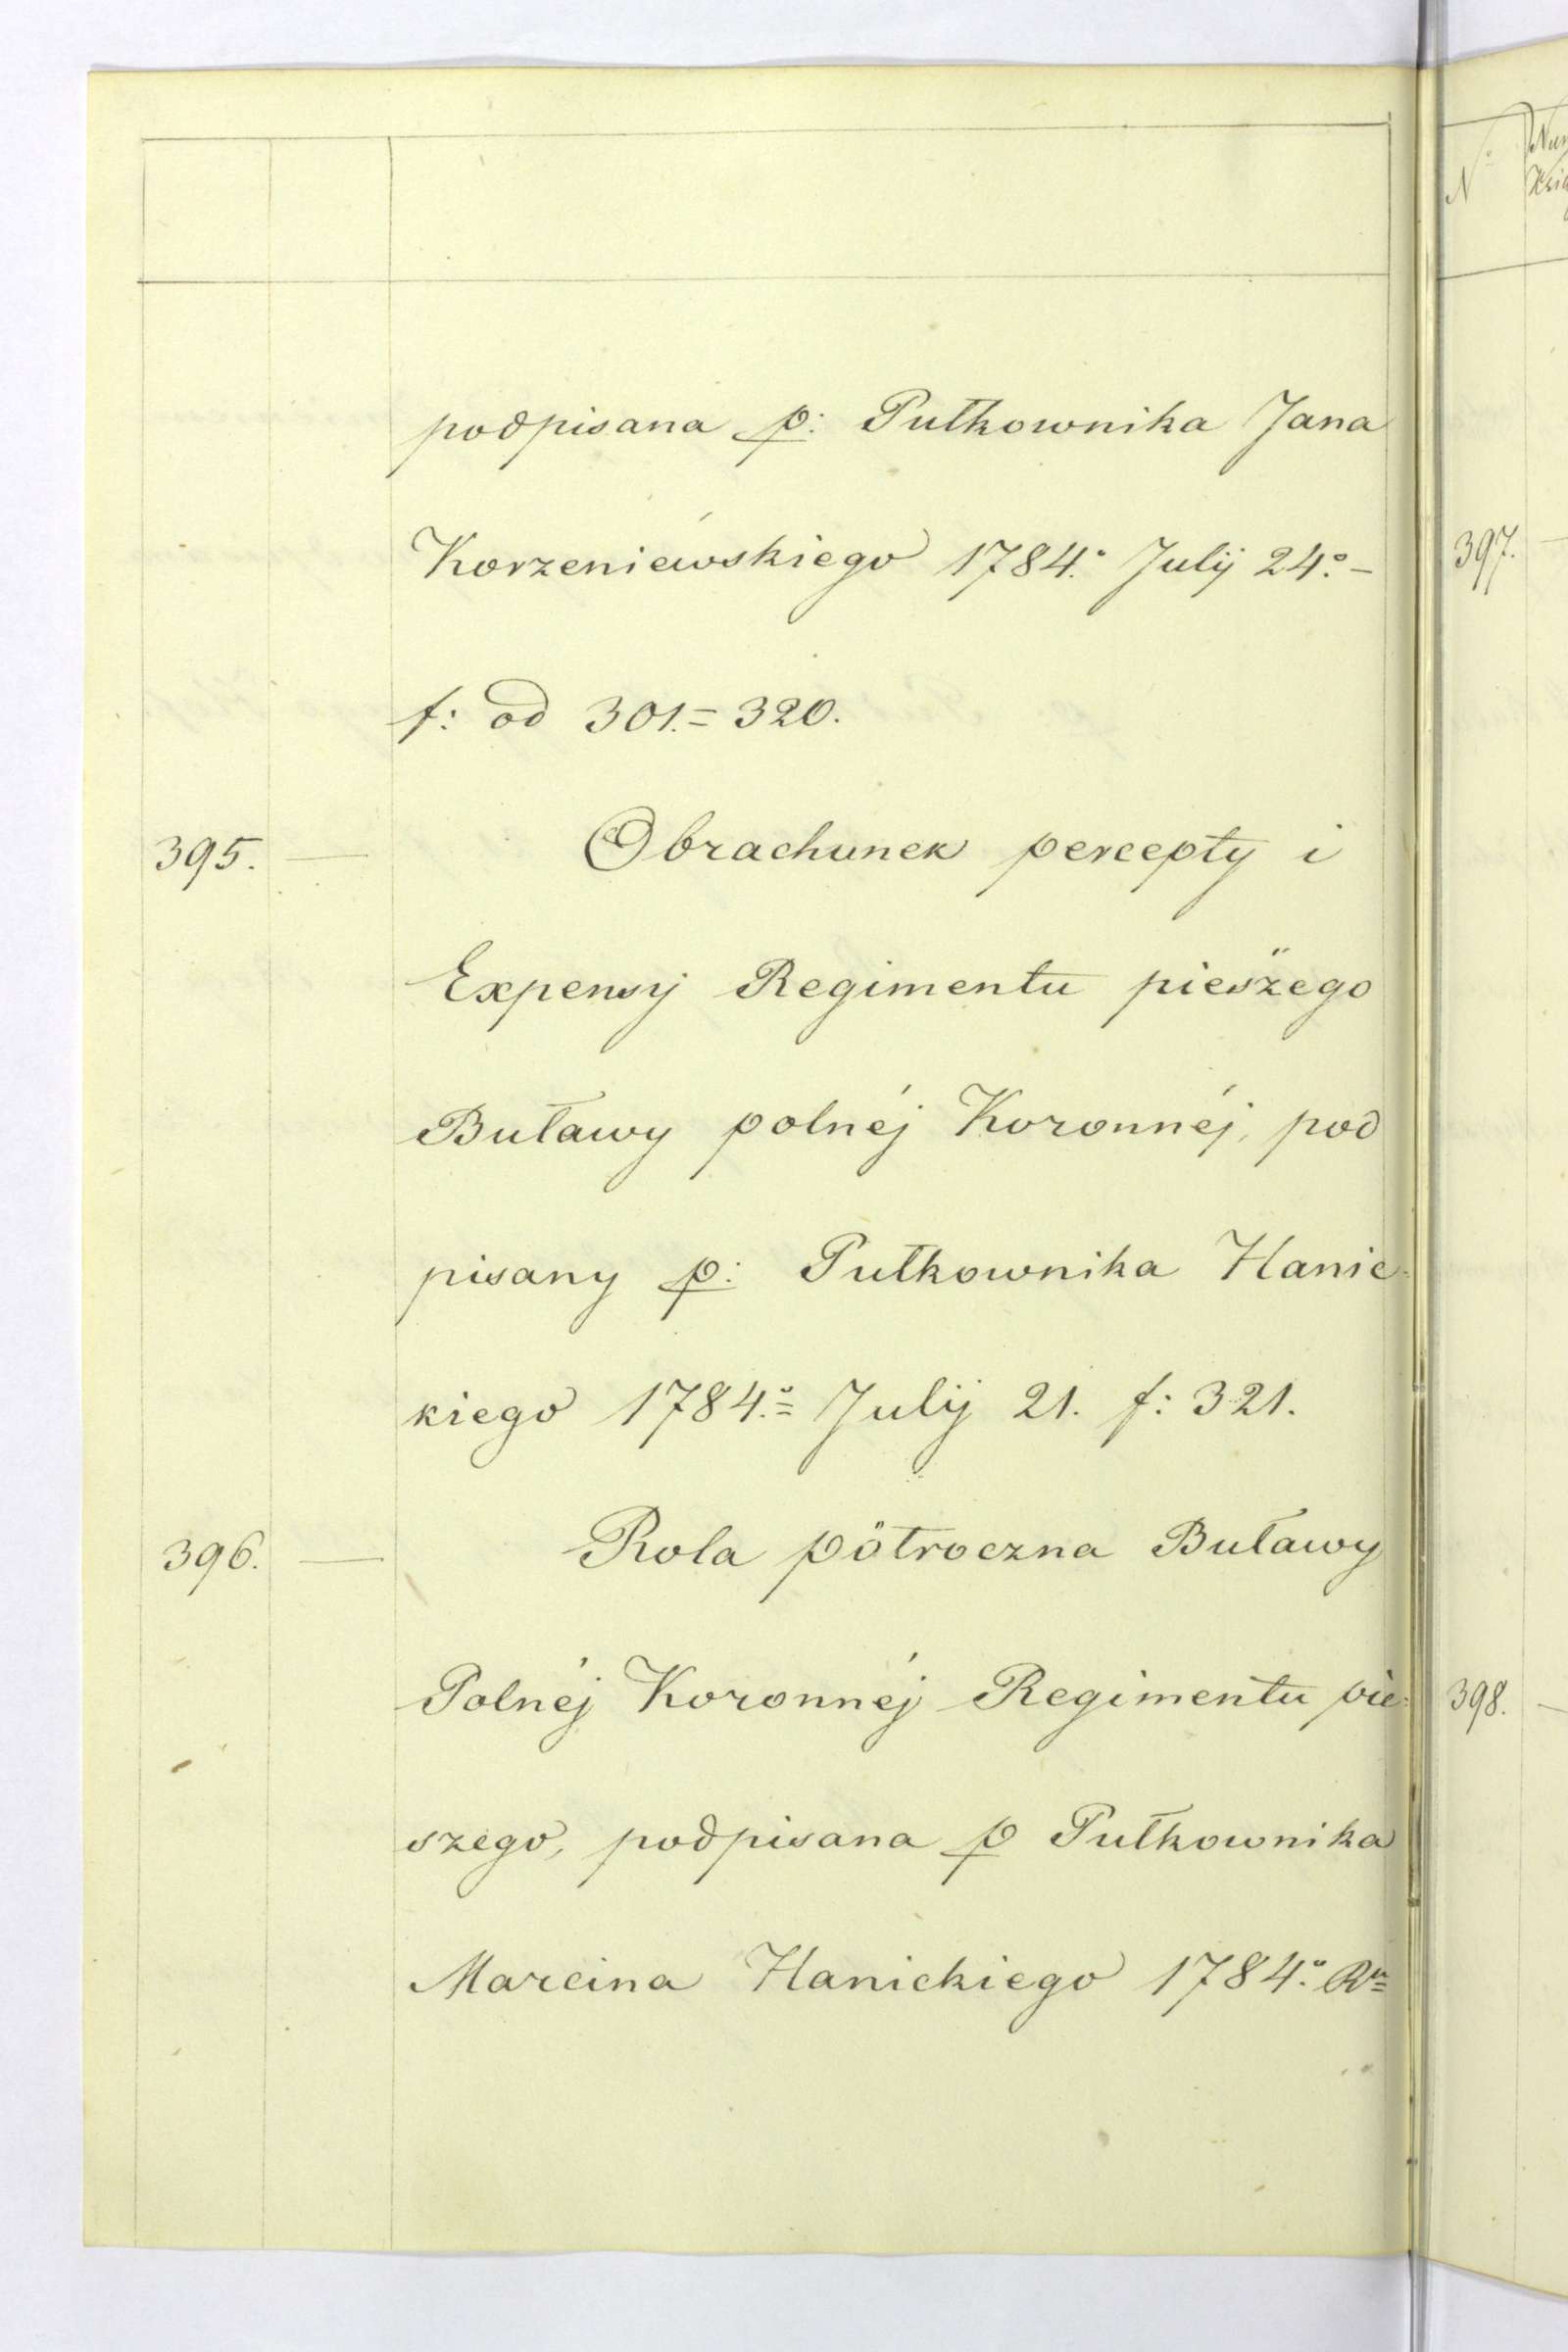 podpisana p: Pułkownika Jana
Korzeniewskiego 1784.° Julij 24.° –
f: od 301.= 320.
395. — Obrachunek percepty i
Expensyj Regimentu pieszego
Buławy polnéj Koronnéj, pod
pisany p: Pułkownika Hanic-
kiego 1784.° Julij 21. f: 321.
396. — Rola półroczna Buławy
Polnéj Koronnéj Regimentu pie=
szego, podpisana p Pułkownika
Marcina Hanickiego 1784.°
N°
397. —
398. —